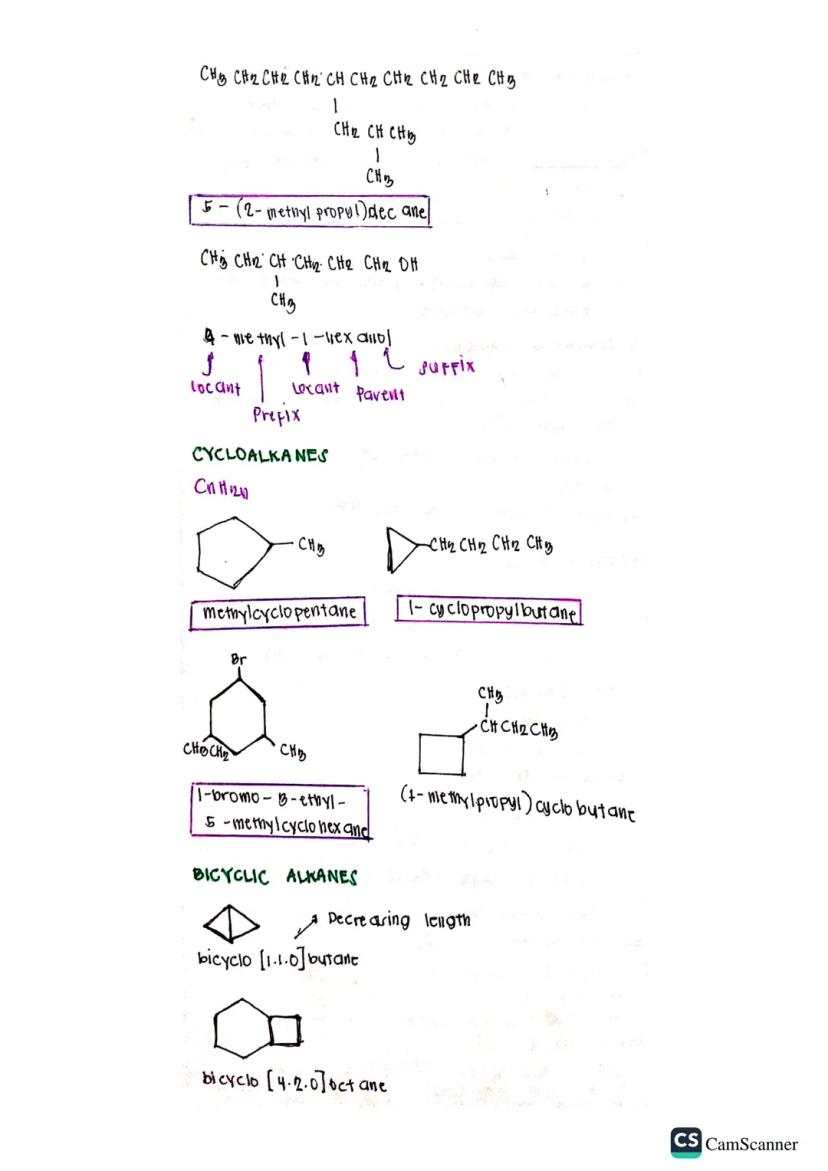 CH3 CH2 CH2 CH2 CH CH2 CH2 CH2 CH2 CH3
|
CH2 CH CH3
|
CH3
5 - (2- methyl propyl) decane
CH3 CH2 CH CH2 CH2 CH2 OH
|
CH3
4 - methyl -1 -hexanol
locant Locant Parent SUFFIX
Prefix
CYCLOALKANES
CnH2n
CH3
CH2 CH2 CH2 CH3
methylcyclopentane
1- cyclopropylbutane
Br
CH3CH2 CH3
CH3
|
CH CH2 CH3
1-bromo - 3-ethyl -
5 -methylcyclohexane
(1-methylpropyl) cyclobutane
BICYCLIC ALKANES
Decreasing length
bicyclo [1.1.0] butane
bicyclo [4.2.0] octane
CS CamScanner